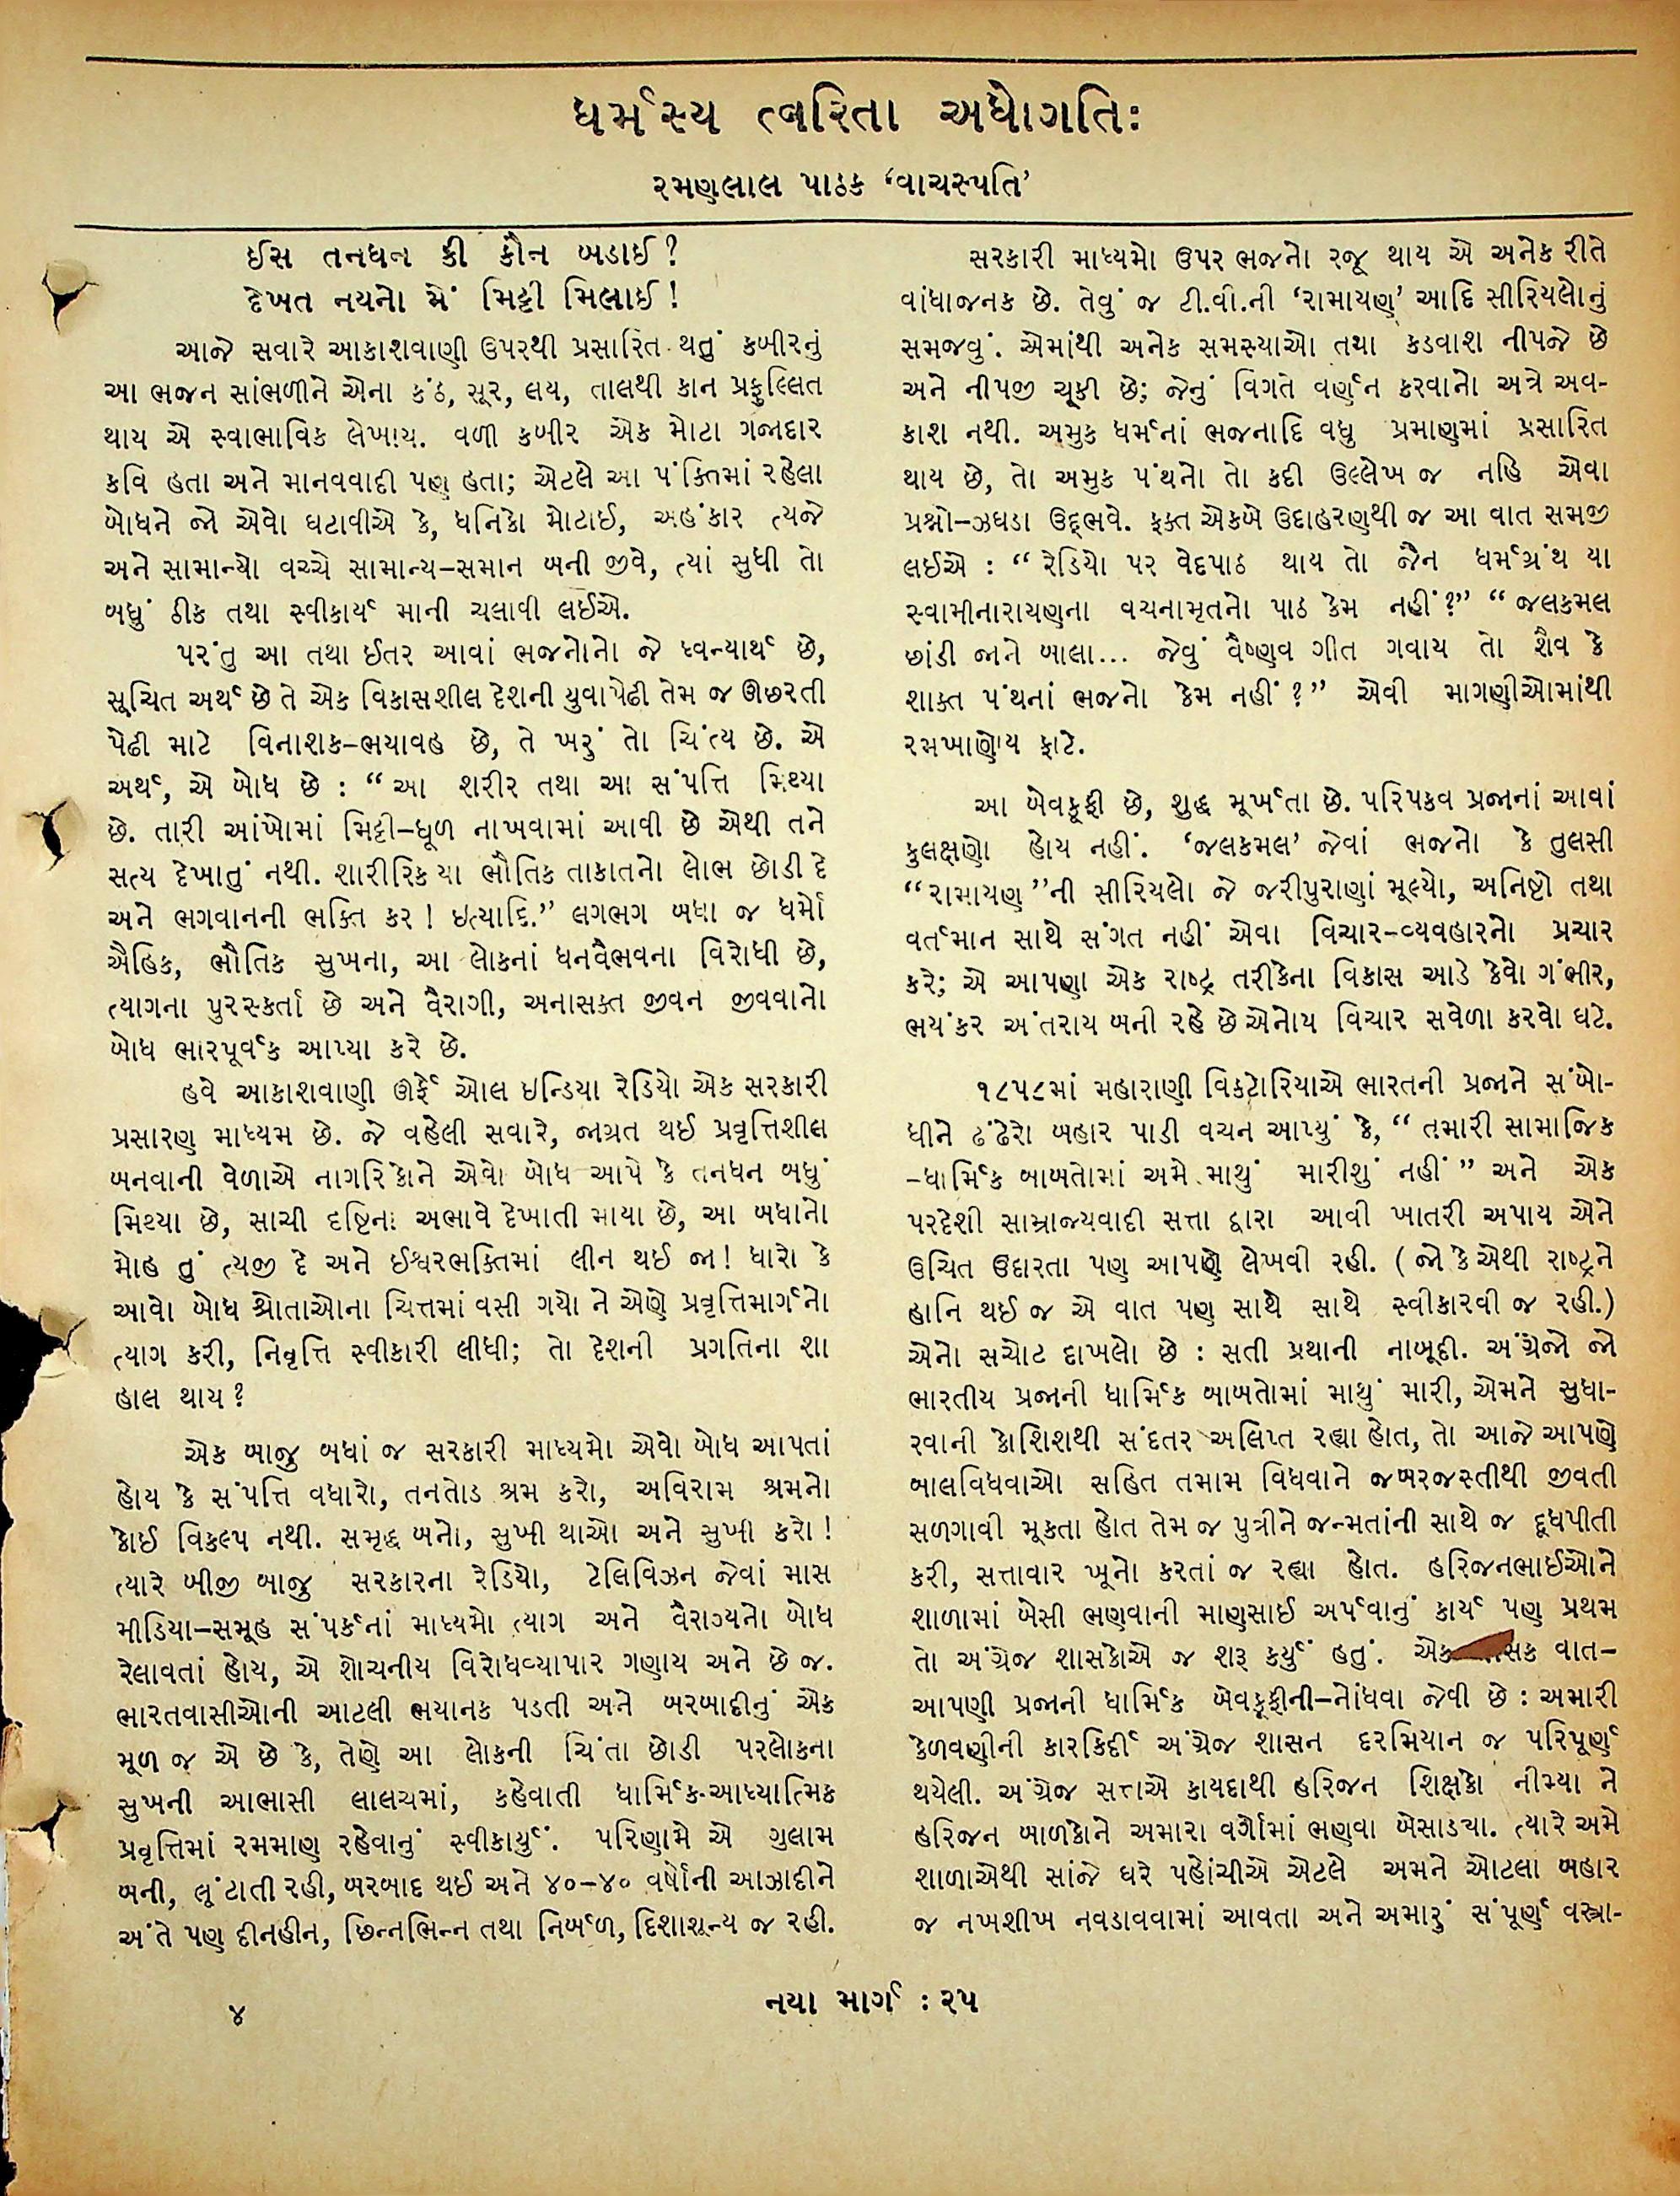 ધર્મસ્ય ત્વરિતા અધોગતિઃ
રમણલાલ પાઠક ‘વાચસ્પતિ’
ઈસ તનધન કી કૌન બડાઈ ?
દેખત નયનો મેં મિટ્ટી મિલાઈ !
આજે સવારે આકાશવાણી ઉપરથી પ્રસારિત થતું કબીરનું
આ ભજન સાંભળીને એના કંઠ, સૂર, લય, તાલથી કાન પ્રફુલ્લિત
થાય એ સ્વાભાવિક લેખાય. વળી કબીર એક મોટા ગજાદાર
કવિ હતા અને માનવવાદી પણ હતા; એટલે આ પંક્તિમાં રહેલા
બોધને જો એવો ઘટાવીએ કે, ધનિકો મોટાઈ, અહંકાર ત્યજે
અને સામાન્યો વચ્ચે સામાન્ય–સમાન બની જીવે, ત્યાં સુધી તો
બધું ઠીક તથા સ્વીકાર્ય માની ચલાવી લઈએ.
પરંતુ આ તથા ઈતર આવાં ભજનોનો જે ધ્વન્યાર્થ છે,
સૂચિત અર્થ છે તે એક વિકાસશીલ દેશની યુવાપેઢી તેમ જ ઊછરતી
પેઢી માટે વિનાશક–ભયાવહ છે, તે ખરું તો ચિંત્ય છે. એ
અર્થ, એ બોધ છે : “આ શરીર તથા આ સંપત્તિ મિથ્યા
છે. તારી આંખોમાં મિટ્ટી–ધૂળ નાખવામાં આવી છે એથી તને
સત્ય દેખાતું નથી. શારીરિક યા ભૌતિક તાકાતનો લોભ છોડી દે
અને ભગવાનની ભક્તિ કર ! ઇત્યાદિ.” લગભગ બધા જ ધર્મો
ઐહિક, ભૌતિક સુખના, આ લોકનાં ધનવૈભવના વિરોધી છે,
ત્યાગના પુરસ્કર્તા છે અને વૈરાગી, અનાસક્ત જીવન જીવવાનો
બોધ ભારપૂર્વક આપ્યા કરે છે.
હવે આકાશવાણી ઊર્ફે ઓલ ઇન્ડિયા રેડિયો એક સરકારી
પ્રસારણ માધ્યમ છે. જે વહેલી સવારે, જાગ્રત થઈ પ્રવૃત્તિશીલ
બનવાની વેળાએ નાગરિકોને એવો બોધ આપે કે તનધન બધું
મિથ્યા છે, સાચી દૃષ્ટિના અભાવે દેખાતી માયા છે, આ બધાનો
મોહ તું ત્યજી દે અને ઈશ્વરભક્તિમાં લીન થઈ જા ! ધારો કે
આવો બોધ શ્રોતાઓના ચિત્તમાં વસી ગયો ને એણે પ્રવૃત્તિમાર્ગનો
ત્યાગ કરી, નિવૃત્તિ સ્વીકારી લીધી; તો દેશની પ્રગતિના શા
હાલ થાય ?
એક બાજુ બધાં જ સરકારી માધ્યમો એવો બોધ આપતાં
હોય કે સંપત્તિ વધારો, તનતોડ શ્રમ કરો, અવિરામ શ્રમનો
કોઈ વિકલ્પ નથી. સમૃદ્ધ બનો, સુખી થાઓ અને સુખી કરો !
ત્યારે બીજી બાજુ સરકારના રેડિયો, ટેલિવિઝન જેવાં માસ
મીડિયા–સમૂહ સંપર્કનાં માધ્યમો ત્યાગ અને વૈરાગ્યનો બોધ
રેલાવતાં હોય, એ શોચનીય વિરોધવ્યાપાર ગણાય અને છે જ.
ભારતવાસીઓની આટલી ભયાનક પડતી અને બરબાદીનું એક
મૂળ જ એ છે કે, તેણે આ લોકની ચિંતા છોડી પરલોકના
સુખની આભાસી લાલચમાં, કહેવાતી ધાર્મિક-આધ્યાત્મિક
પ્રવૃત્તિમાં રમમાણ રહેવાનું સ્વીકાર્યું. પરિણામે એ ગુલામ
બની, લૂંટાતી રહી, બરબાદ થઈ અને ૪૦–૪૦ વર્ષોની આઝાદીને
અંતે પણ દીનહીન, છિન્નભિન્ન તથા નિર્બળ, દિશાશૂન્ય જ રહી.
સરકારી માધ્યમો ઉપર ભજનો રજૂ થાય એ અનેક રીતે
વાંધાજનક છે. તેવું જ ટી.વી.ની ‘રામાયણ’ આદિ સીરિયલોનું
સમજવું. એમાંથી અનેક સમસ્યાઓ તથા કડવાશ નીપજે છે
અને નીપજી ચૂકી છે; જેનું વિગતે વર્ણન કરવાનો અત્રે અવ-
કાશ નથી. અમુક ધર્મનાં ભજનાદિ વધુ પ્રમાણમાં પ્રસારિત
થાય છે, તો અમુક પંથનો તો કદી ઉલ્લેખ જ નહિ એવા
પ્રશ્નો–ઝઘડા ઉદ્દભવે. ફક્ત એકબે ઉદાહરણથી જ આ વાત સમજી
લઈએ : “ રેડિયો પર વેદપાઠ થાય તો જૈન ધર્મગ્રંથ યા
સ્વામીનારાયણના વચનામૃતનો પાઠ કેમ નહીં ?” “ જલકમલ
છાંડી જાને બાલા... જેવું વૈષ્ણવ ગીત ગવાય તો શૈવ કે
શાક્ત પંથનાં ભજનો કેમ નહીં ?” એવી માગણીઓમાંથી
રમખાણોય ફાટે.
આ બેવકૂફી છે, શુદ્ધ મૂર્ખતા છે. પરિપકવ પ્રજાનાં આવાં
કુલક્ષણો હોય નહીં. ‘જલકમલ’ જેવાં ભજનો કે તુલસી
“રામાયણ”ની સીરિયલો જે જરીપુરાણાં મૂલ્યો, અનિષ્ટો તથા
વર્તમાન સાથે સંગત નહીં એવા વિચાર-વ્યવહારનો પ્રચાર
કરે; એ આપણા એક રાષ્ટ્ર તરીકેના વિકાસ આડે કેવો ગંભીર,
ભયંકર અંતરાય બની રહે છે એનોય વિચાર સવેળા કરવો ઘટે.
૧૮૫૮માં મહારાણી વિકટોરિયાએ ભારતની પ્રજાને સંબો-
ધીને ઢંઢેરો બહાર પાડી વચન આપ્યું કે, “ તમારી સામાજિક
-ધાર્મિક બાબતોમાં અમે માથું મારીશું નહીં ” અને એક
પરદેશી સામ્રાજ્યવાદી સત્તા દ્વારા આવી ખાતરી અપાય એને
ઉચિત ઉદારતા પણ આપણે લેખવી રહી. ( જો કે એથી રાષ્ટ્રને
હાનિ થઈ જ એ વાત પણ સાથે સાથે સ્વીકારવી જ રહી.)
એનો સચોટ દાખલો છે : સતી પ્રથાની નાબૂદી. અંગ્રેજો જો
ભારતીય પ્રજાની ધાર્મિક બાબતોમાં માથું મારી, એમને સુધા-
રવાની કોશિશથી સંદતર અલિપ્ત રહ્યા હોત, તો આજે આપણે
બાલવિધવાઓ સહિત તમામ વિધવાને જબરજસ્તીથી જીવતી
સળગાવી મૂકતા હોત તેમ જ પુત્રીને જન્મતાંની સાથે જ દૂધપીતી
કરી, સત્તાવાર ખૂનો કરતાં જ રહ્યા હોત. હરિજનભાઈઓને
શાળામાં બેસી ભણવાની માણસાઈ અર્પવાનું કાર્ય પણ પ્રથમ
તો અંગ્રેજ શાસકોએ જ શરૂ કર્યું હતું. એક સક વાત–
આપણી પ્રજાની ધાર્મિક બેવકૂફીની–નોંધવા જેવી છે : અમારી
કેળવણીની કારકિર્દી અંગ્રેજ શાસન દરમિયાન જ પરિપૂર્ણ
થયેલી. અંગ્રેજ સત્તાએ કાયદાથી હરિજન શિક્ષકો નીમ્યા ને
હરિજન બાળકોને અમારા વર્ગોમાં ભણવા બેસાડ્યા. ત્યારે અમે
શાળાએથી સાંજે ઘરે પહોંચીએ એટલે અમને ઓટલા બહાર
જ નખશીખ નવડાવવામાં આવતા અને અમારું સંપૂર્ણ વસ્ત્રા-
૪
નયા માર્ગ : ૨૫